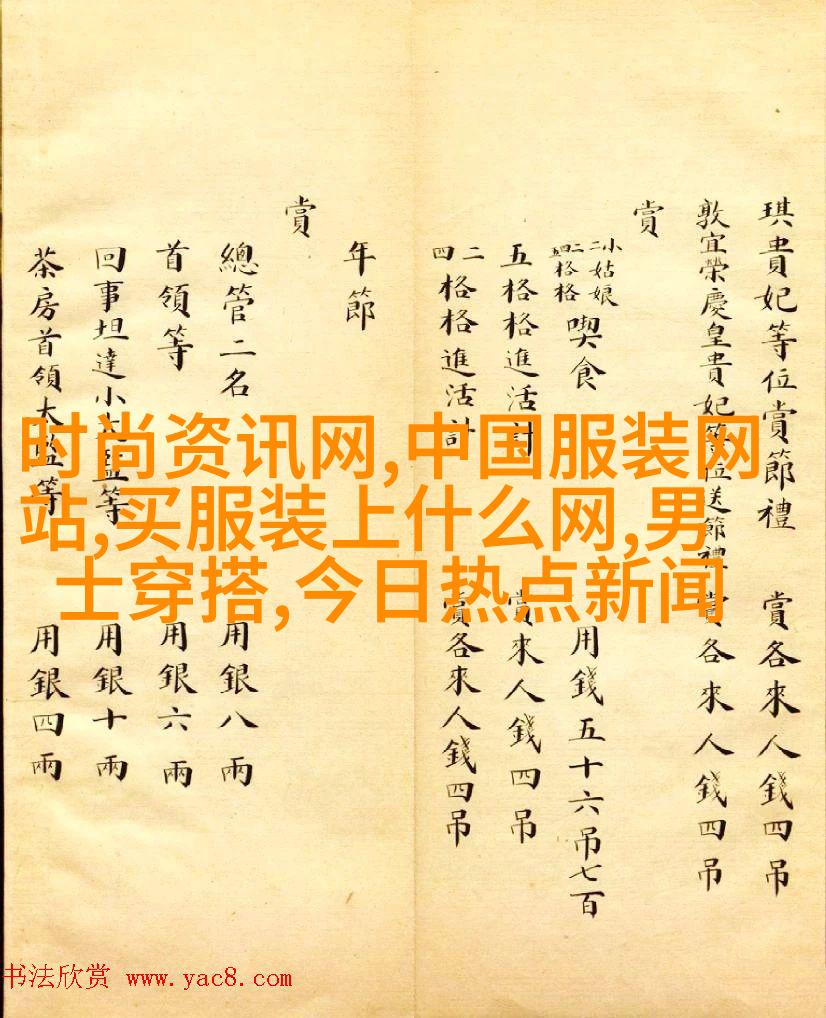 琪貴妃等位賞節禮 賞各來人錢四吊
敦宜榮慶皇貴妃等位送節禮 賞各來人錢四吊
賞
小姑娘
二二格格
四格格
喫食 用錢五十六吊七百
五格格進活計 賞來人錢四吊
二四格格進活計 賞各來人錢四吊
年節
賞
總管二名 用銀八兩
首領等 用銀六兩
回事坦達小太監等 用銀十兩
茶房首領大監等 用銀四兩
时尚资讯网,中国服装网
站,买服装上什么网,男
士穿搭,今日热点新闻
书法欣赏 www.yac8.com